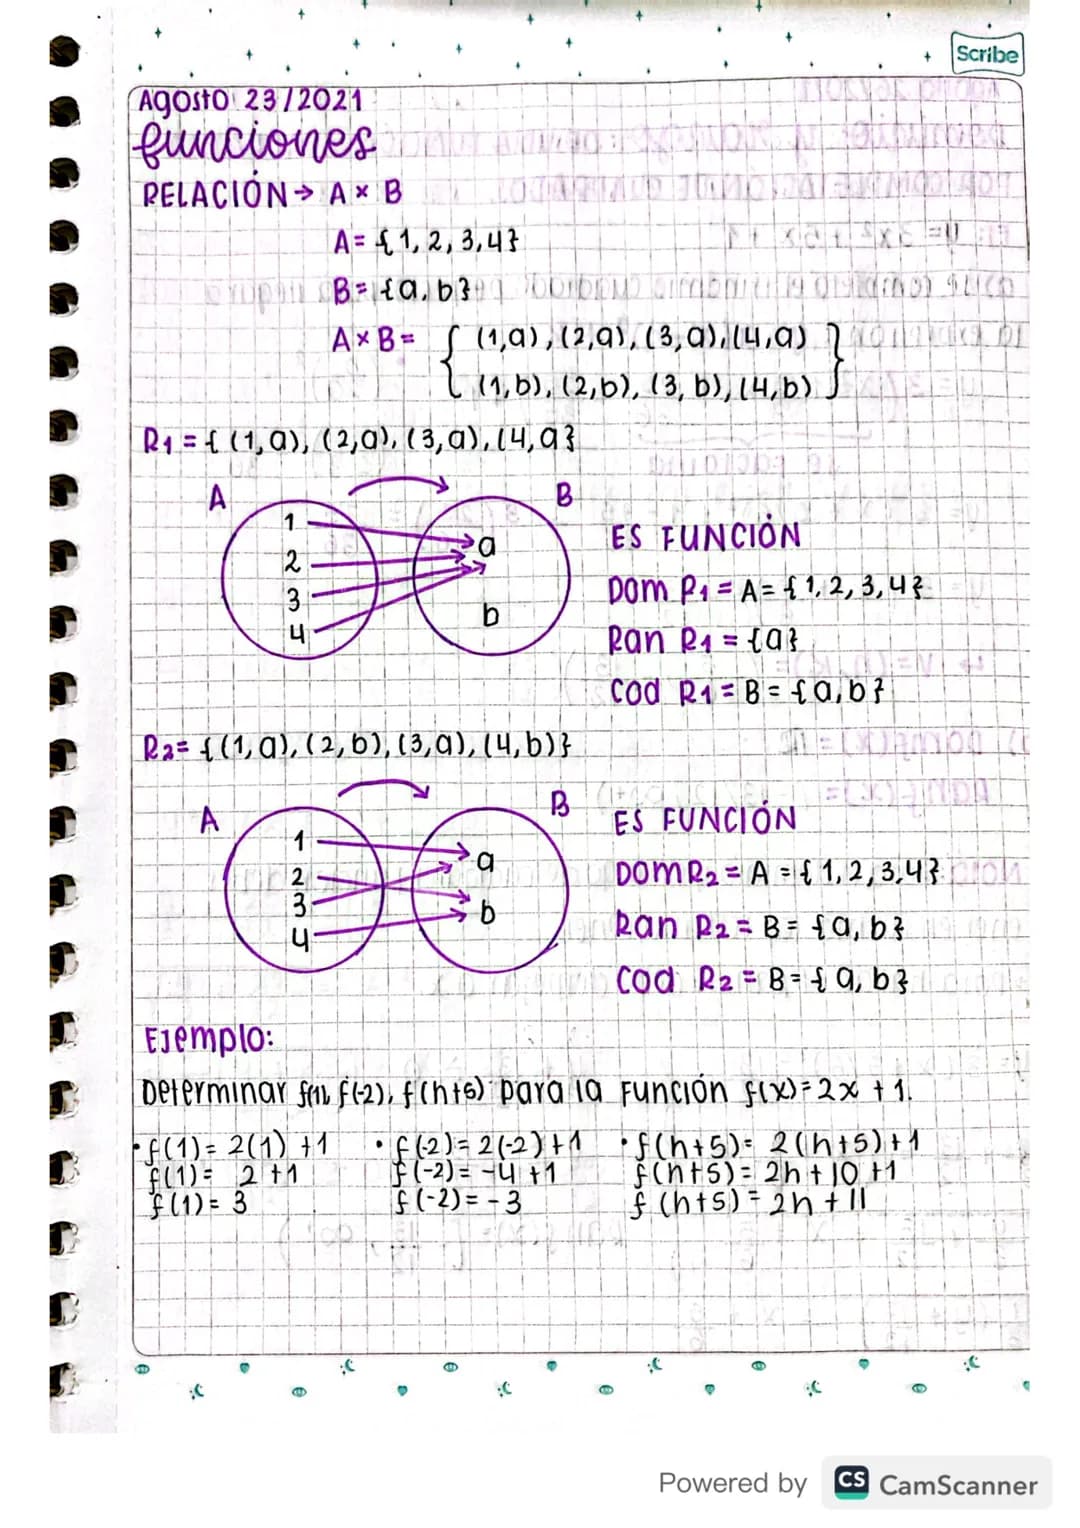 Scribe
Agosto 23/2021
funciones
RELACIÓN → A × B
A = {1, 2, 3, 4}
B = {a, b}
A × B = { (1,a), (2,a), (3,a), (4,a)
(1,b), (2,b), (3,b), (4,b) }
R1 = { (1,a), (2,a), (3,a), (4,a}
A B
1
2
3
4
a
b
ES FUNCIÓN
Dom R1 = A = {1, 2, 3, 4}
Ran R1 = {a}
Cod R1 = B = {a, b}
R2 = {(1,a), (2,b), (3,a), (4,b)}
A B
1
2
3
4
a
b
ES FUNCIÓN
DOM R2 = A = {1, 2, 3, 4}
Ran R2 = B = {a, b}
Cod R2 = B = {a, b}
Ejemplo:
Determinar f(1), f(-2), f(h+5) para la función f(x) = 2x + 1.
• f(1) = 2(1) + 1 • f(-2) = 2(-2) + 1 • f(h+5) = 2(h+5) + 1
f(1) = 2 + 1 f(-2) = -4 + 1 f(h+5) = 2h + 10 + 1
f(1) = 3 f(-2) = -3 f(h+5) = 2h + 11
Powered by CS CamScanner